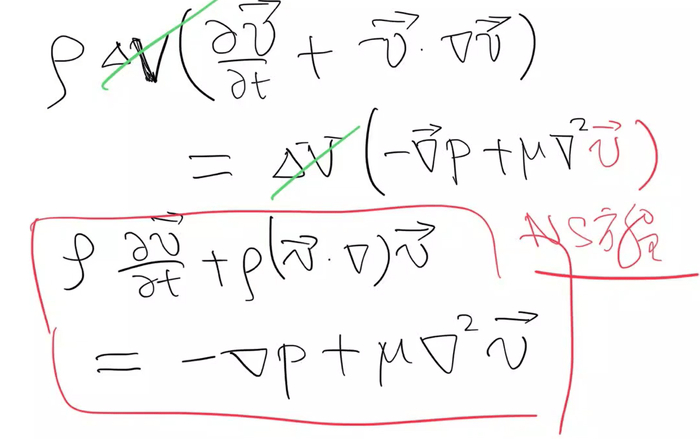 ρ ΔV(∂v⃗/∂t + v⃗·∇v⃗)
= ΔV(-∇⃗p + μ∇²v⃗)
NS方程
ρ ∂v⃗/∂t + ρ(v⃗·∇)v⃗
= -∇p + μ∇²v⃗